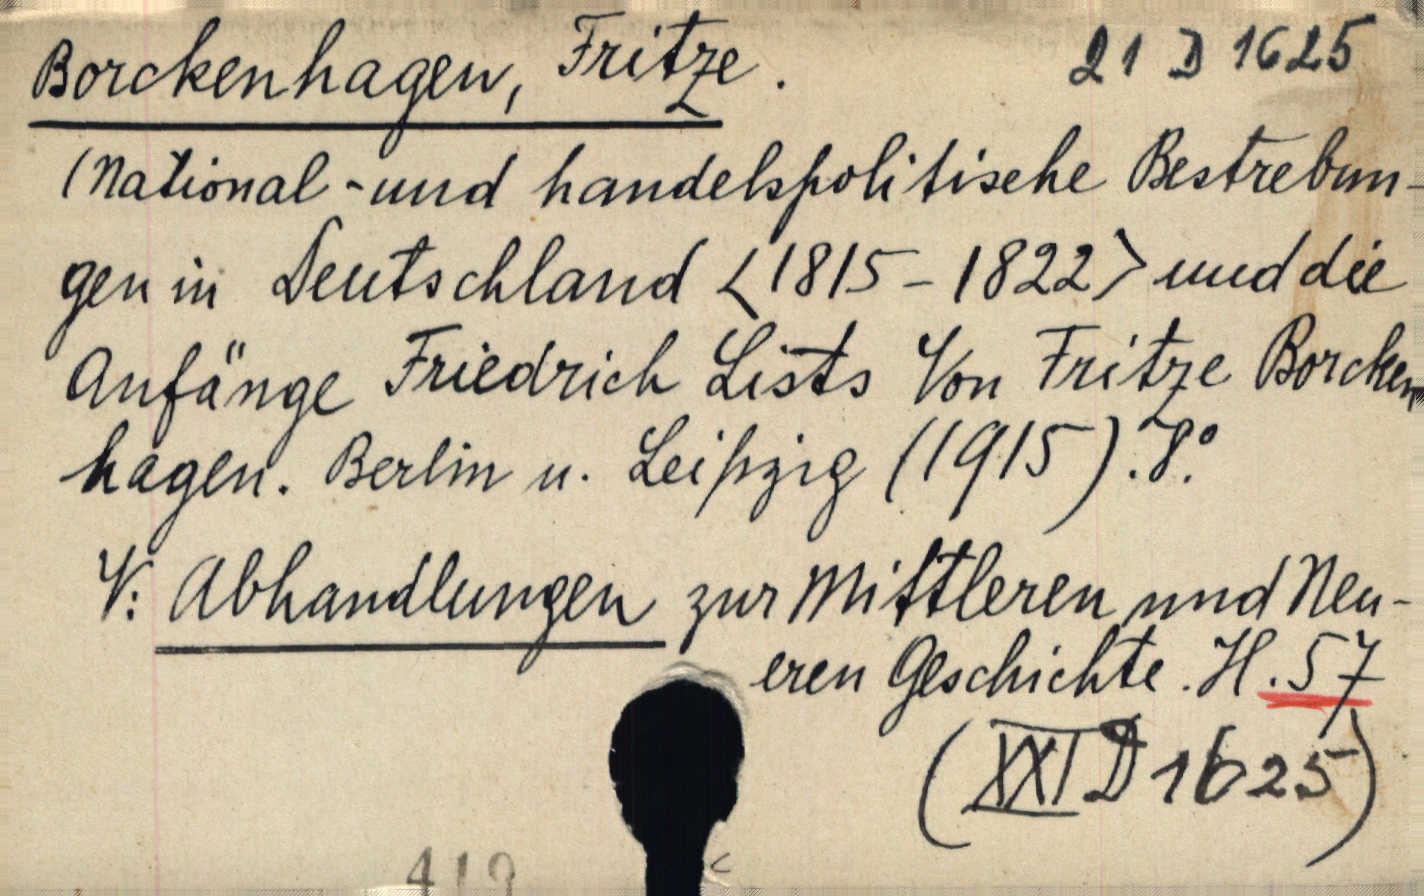 Borckenhagen, Fritze. 21 D 1625
(National- und handelspolitische Bestrebun-
gen in Deutschland <1815-1822> und die
Anfänge Friedrich Lists Von Fritze Borcken
hagen. Berlin u. Leipzig (1915). 8°.
V: Abhandlungen zur Mittleren und Neu-
eren Geschichte. H. 57
(XXI D 1625)
419